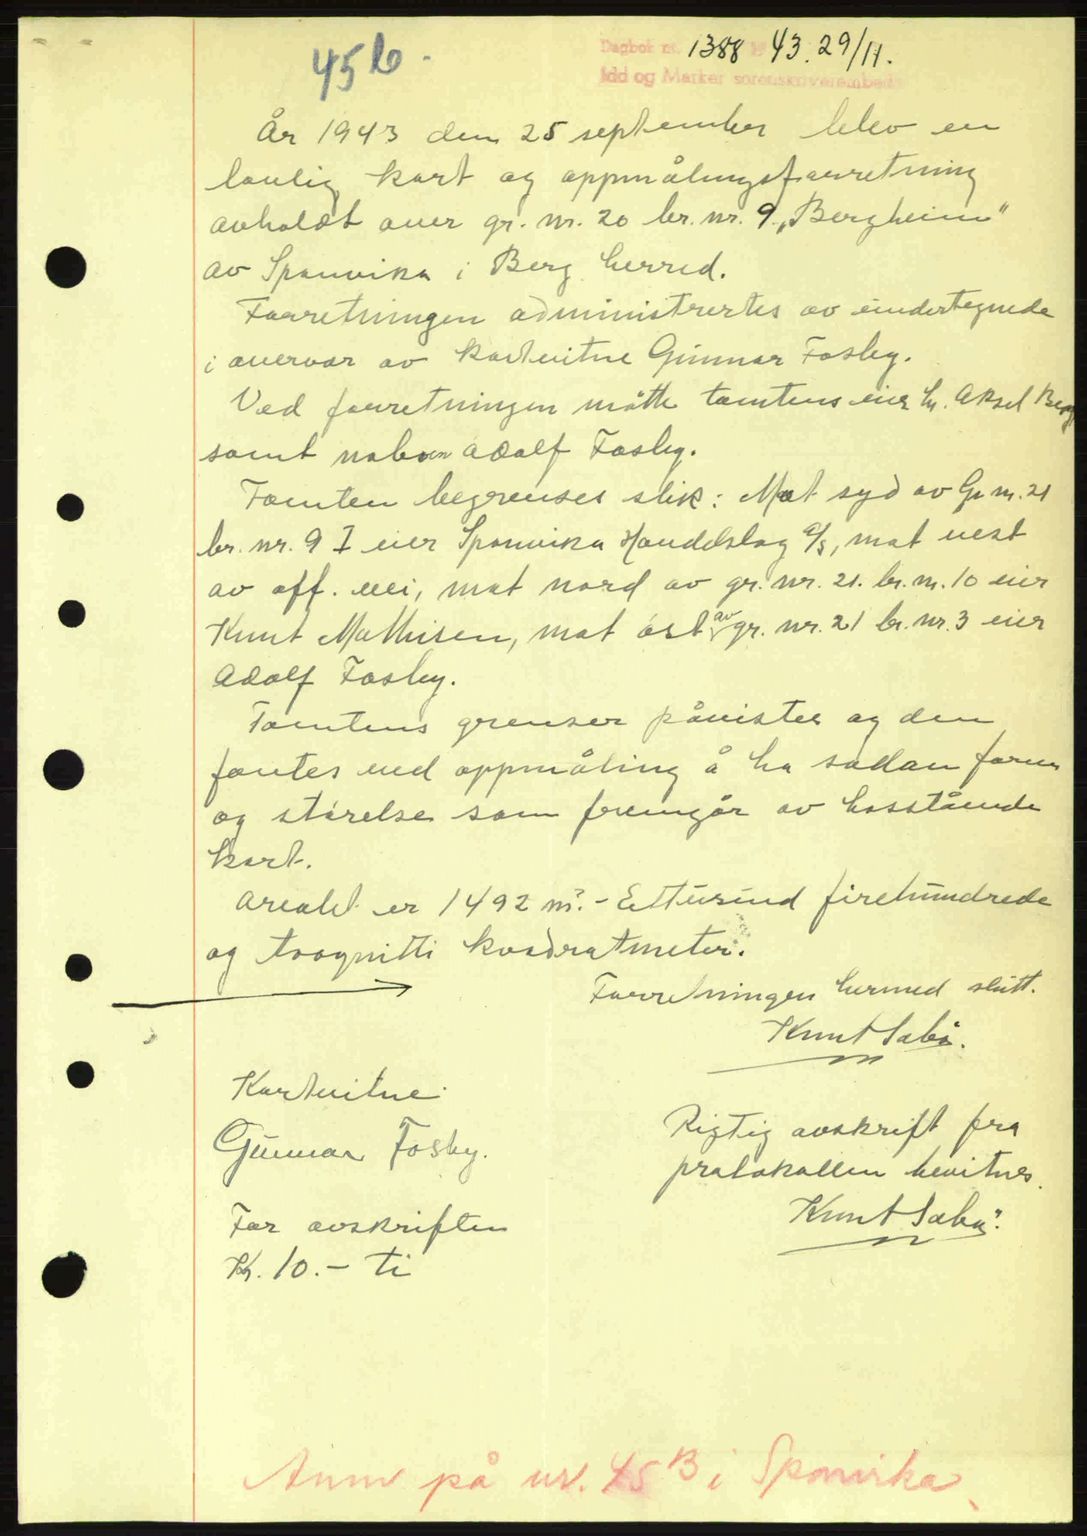 456.
Dagbok nr. 1388 43. 29/11.
Idd og Marker sorenskriverembede
År 1943 den 25 september blev en
lovlig kart og oppmålingsforretning
avholdt over gr. nr. 20 br. nr. 9 „Bergheim"
av Sponvika i Berg herred.
Forretningen administrertes av undertegnede
i overvær av kartvitne Gunnar Fosby.
Ved forretningen møtte tomtens eier hr. Aksel Berg
samt naboen Adolf Fosby.
Tomten begrenses slik: Mot syd av Gr. nr. 21
br. nr. 9 I eier Sponvika Handelslag a/s, mot vest
av off. vei, mot nord av gr. nr. 21. br. nr. 10 eier
Knut Mathisen, mot øst av gr. nr. 21 br. nr. 3 eier
Adolf Fosby.
Tomtens grenser påvistes og den
fantes ved oppmåling å ha sådan form
og størelse som fremgår av hosstående
kart.
Arealet er 1492 m². - Ettusind firehundrede
og tvognitti kvadratmeter.
Forretningen hermed slutt.
Knut Sabø.
Kartvitne:
Gunnar Fosby.
Rigtig avskrift fra
protokollen bevitnes.
Knut Sabø.
For avskriften
Kr. 10.- ti
Anm på nr. 45 B i Sponvika